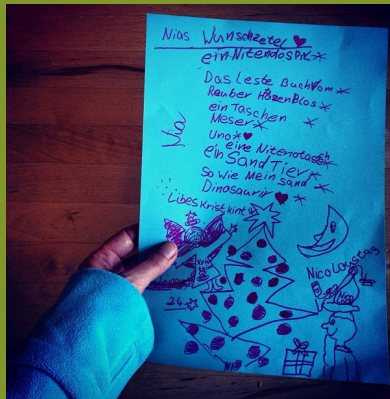 Nias Wunschzetel
ein Nitendospil
Das Leste Buch vom
Räuber Hozenblos
ein Taschen
Meser
Uno
eine Nitenotasch
ein Sand Tier
so wie Mein sand
Dinosaurir
Nia
Libes Kristkint
Nicolaustag
24